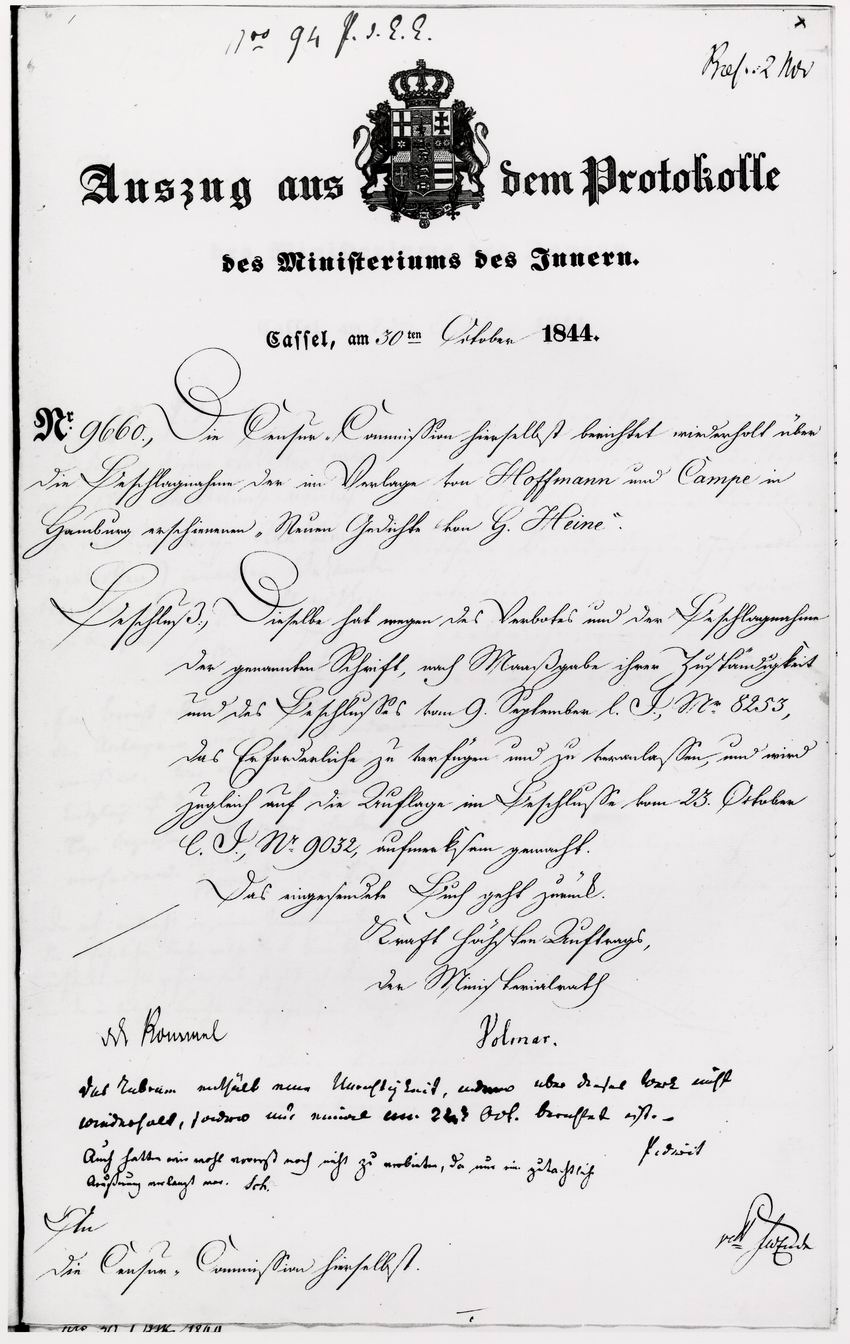 Nro 94 P. d. C. C.
Praes. 2 Nov
Auszug aus dem Protokolle
des Ministeriums des Innern.
Cassel, am 30ten October 1844.
Nr. 9660., Die Censur-Commission hierselbst berichtet wiederholt über
die Beschlagnahme der im Verlage von Hoffmann und Campe in
Hamburg erschienenen „Neuen Gedichte von H. Heine“.
Beschluß., Dieselbe hat wegen des Verbotes und der Beschlagnahme
der genannten Schrift, nach Maaßgabe ihrer Zuständigkeit
und des Beschlusses vom 9. September l. J., Nr 8253,
das Erforderliche zu verfügen und zu veranlassen, und wird
zugleich auf die Auflage im Beschlusse vom 23. October
l. J., Nr. 9032, aufmerksam gemacht.
Das eingesendete Buch geht zurück.
Kraft höchsten Auftrags,
der Ministerialrath
Volmar.
vdt Rommel
das Rubrum enthält eine Unrichtigkeit, indem über dieses Werk nicht
wiederholt, sondern nur einmal am Oct. berichtet ist.
Auch hatten wir wohl noch nicht zu verbieten, da nur ein gutachtlich
Äußerung verlangt war. Sch.
An
die Censur-Commission hierselbst.